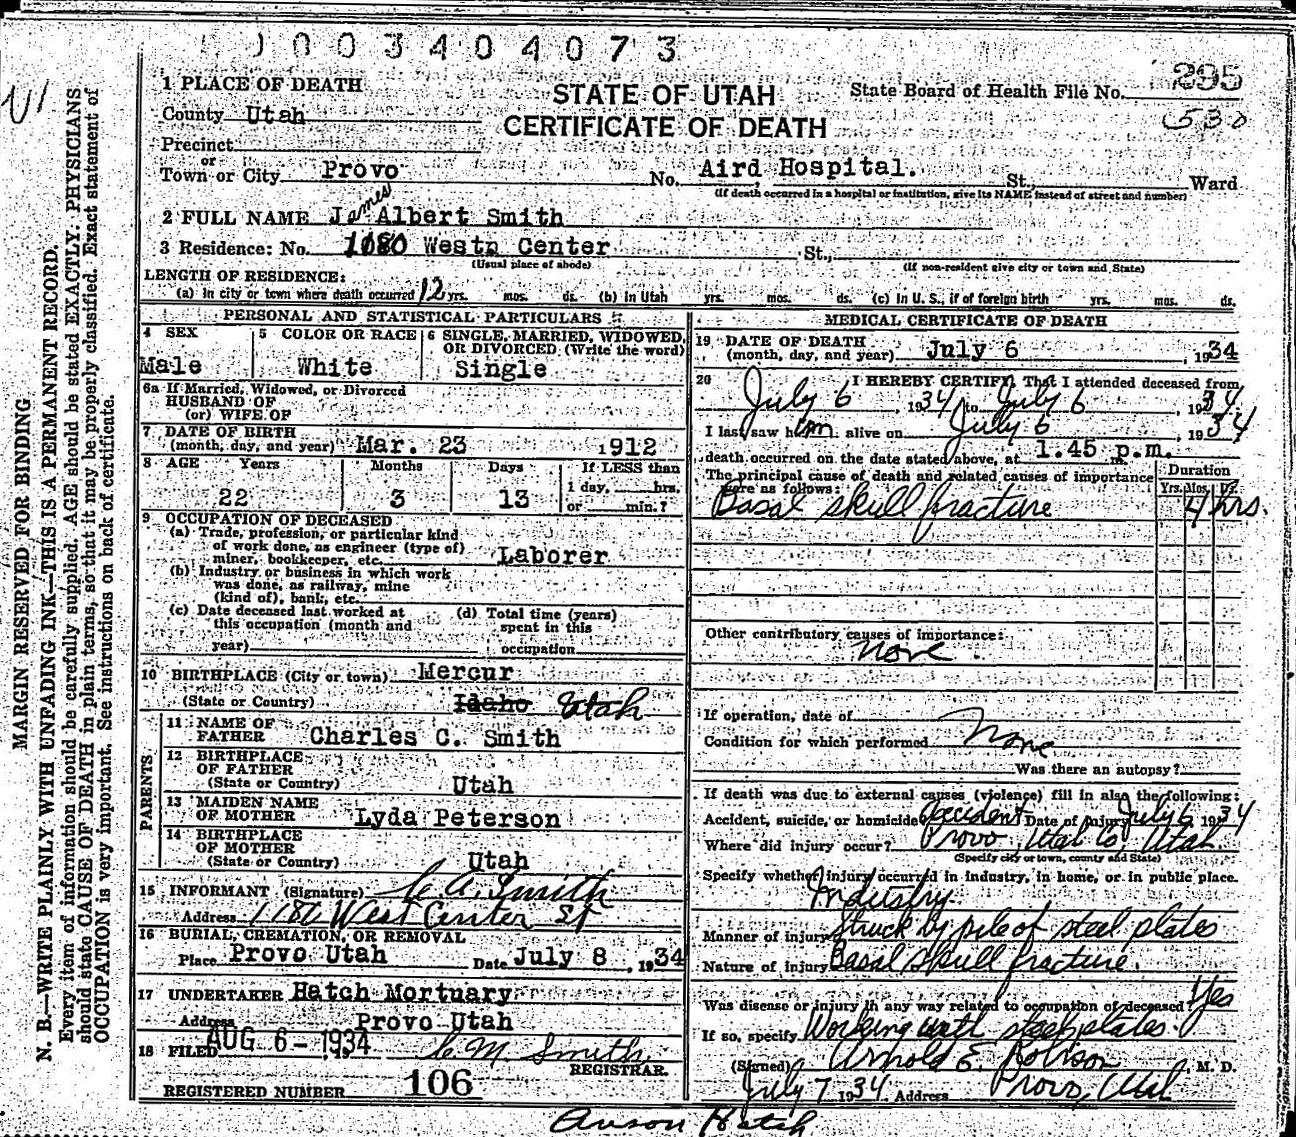 0 0 3 4 0 4 0 7 3
1 PLACE OF DEATH
STATE OF UTAH
CERTIFICATE OF DEATH
State Board of Health File No. 295
530
County Utah
Precinct
or
Town or City Provo No. Aird Hospital. St., Ward
(If death occurred in a hospital or institution, give its NAME instead of street and number)
2 FULL NAME James Albert Smith
3 Residence: No. 1080 West Center St.,
(Usual place of abode) (If non-resident give city or town and State)
LENGTH OF RESIDENCE:
(a) In city or town where death occurred 12 yrs. mos. ds. (b) In Utah yrs. mos. ds. (c) In U. S., if of foreign birth yrs. mos. ds.
PERSONAL AND STATISTICAL PARTICULARS
4 SEX
Male
5 COLOR OR RACE
White
6 SINGLE, MARRIED, WIDOWED,
OR DIVORCED (Write the word)
Single
6a If Married, Widowed, or Divorced
HUSBAND OF
(or) WIFE OF
7 DATE OF BIRTH
(month, day, and year) Mar. 23 1912
8 AGE Years Months Days If LESS than
1 day, hrs.
or min.?
22 3 13
9 OCCUPATION OF DECEASED
(a) Trade, profession, or particular kind
of work done, as engineer (type of)
miner, bookkeeper, etc. Laborer
(b) Industry or business in which work
was done, as railway, mine
(kind of), bank, etc.
(c) Date deceased last worked at
this occupation (month and
year)
(d) Total time (years)
spent in this
occupation
10 BIRTHPLACE (City or town) Mercur
(State or Country) Idaho Utah
PARENTS
11 NAME OF
FATHER Charles C. Smith
12 BIRTHPLACE
OF FATHER
(State or Country) Utah
13 MAIDEN NAME
OF MOTHER Lyda Peterson
14 BIRTHPLACE
OF MOTHER
(State or Country) Utah
15 INFORMANT (Signature) C. A. Smith
Address 1186 West Center St
16 BURIAL, CREMATION, OR REMOVAL
Place Provo Utah Date July 8, 1934
17 UNDERTAKER Hatch Mortuary
Address Provo Utah
18 FILED AUG 6-1934 C. M. Smith
REGISTRAR.
REGISTERED NUMBER 106
MEDICAL CERTIFICATE OF DEATH
19 DATE OF DEATH
(month, day, and year) July 6, 1934
20 I HEREBY CERTIFY, That I attended deceased from
July 6, 1934 to July 6, 1934
I last saw him alive on July 6, 1934
death occurred on the date stated above, at 1.45 p.m.
The principal cause of death and related causes of importance
were as follows:
Duration
Yrs. Mos. Ds.
Basal skull fracture 4 hrs.
Other contributory causes of importance:
None.
If operation, date of
Condition for which performed None
Was there an autopsy?
If death was due to external causes (violence) fill in also the following:
Accident, suicide, or homicide Accident Date of injury July 6, 1934
Where did injury occur? Provo, Utah Co, Utah
(Specify city or town, county and State)
Specify whether injury occurred in industry, in home, or in public place.
Industry
Manner of injury Struck by pile of steel plates
Nature of injury Basal skull fracture.
Was disease or injury in any way related to occupation of deceased? Yes
If so, specify Working with steel plates.
(Signed) Arnold E. Robison M. D.
July 7 1934 Address Provo, Utah
Anson Hatch
MARGIN RESERVED FOR BINDING
N. B.—WRITE PLAINLY WITH UNFADING INK—THIS IS A PERMANENT RECORD.
Every item of information should be carefully supplied. AGE should be stated EXACTLY. PHYSICIANS
should state CAUSE OF DEATH in plain terms, so that it may be properly classified. Exact statement of
OCCUPATION is very important. See instructions on back of certificate.